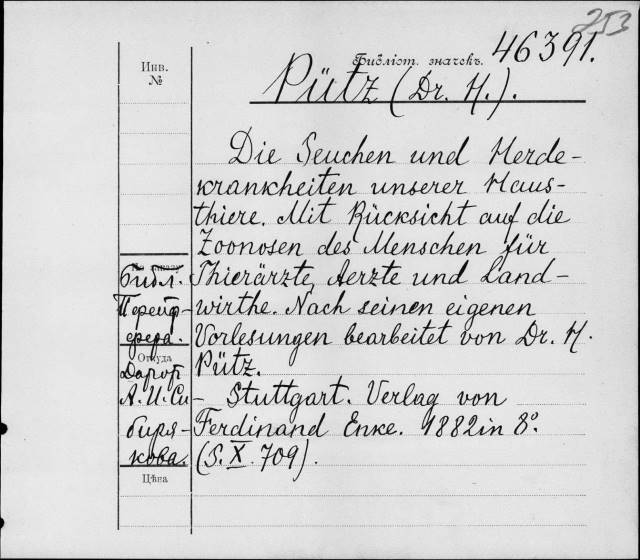 253
Библіот. значекъ. 46391.
Инв.
№
Pütz (Dr. H.).
Die Seuchen und Herde-
krankheiten unserer Haus-
thiere. Mit Rücksicht auf die
Zoonosen des Menschen für
Thierärzte, Aerzte und Land-
wirthe. Nach seinen eigenen
Vorlesungen bearbeitet von Dr. H.
Pütz.
– Stuttgart. Verlag von
Ferdinand Enke. 1882 in 8°.
(S. X. 709).
Библ.
Перейф-
ерера.
Откуда
Дарот
А. И. Си-
биря-
кова.
Цѣна